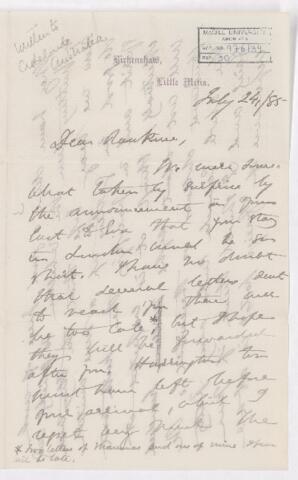 Written to
Adelaide
Australia
McGILL UNIVERSITY
ARCHIVES
ACC. NO. 976/39
REF. 30
Birkenshaw,
Little Metis.
July 24, /85
Dear Rankine,
We were some-
what taken by surprise by
the announcement in your
last to Eva that your stay
in London would be so
short. I have no doubt
that several letters sent
to reach you there will
be too late,* but I hope
they will be forwarded
after you. Harrington too
must have left before
your arrival, which I
regret very much. The
* Two letters of Mamma's and one of mine
will be late.